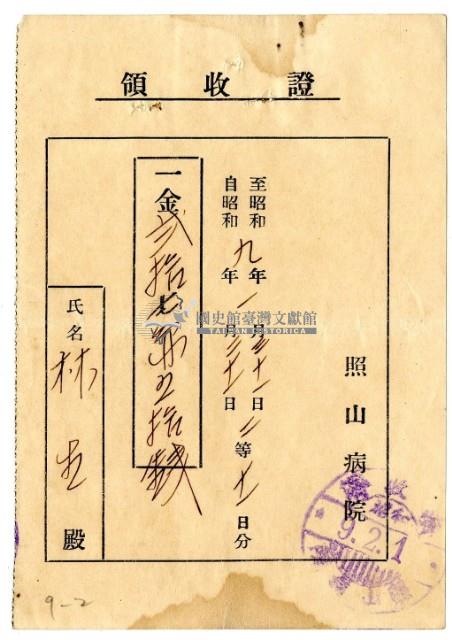 領收證
照山病院
至昭和九年一月三十一日二等十一日分
自昭和年一月二十一日
一金貳拾七円五拾錢
氏名 林 殿
9.2.1
9-2
國史館臺灣文獻館
TAIWAN HISTORICA